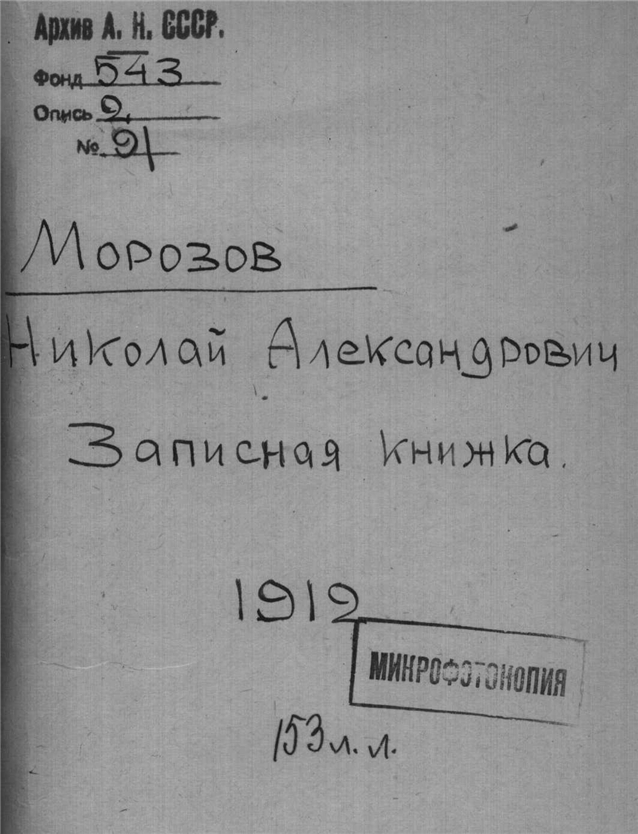 Архив А. Н. СССР.
Фонд 543
Опись 2
№ 91
Морозов
Николай Александрович
Записная книжка.
1912
МИКРОФОТОКОПИЯ
153 л. л.